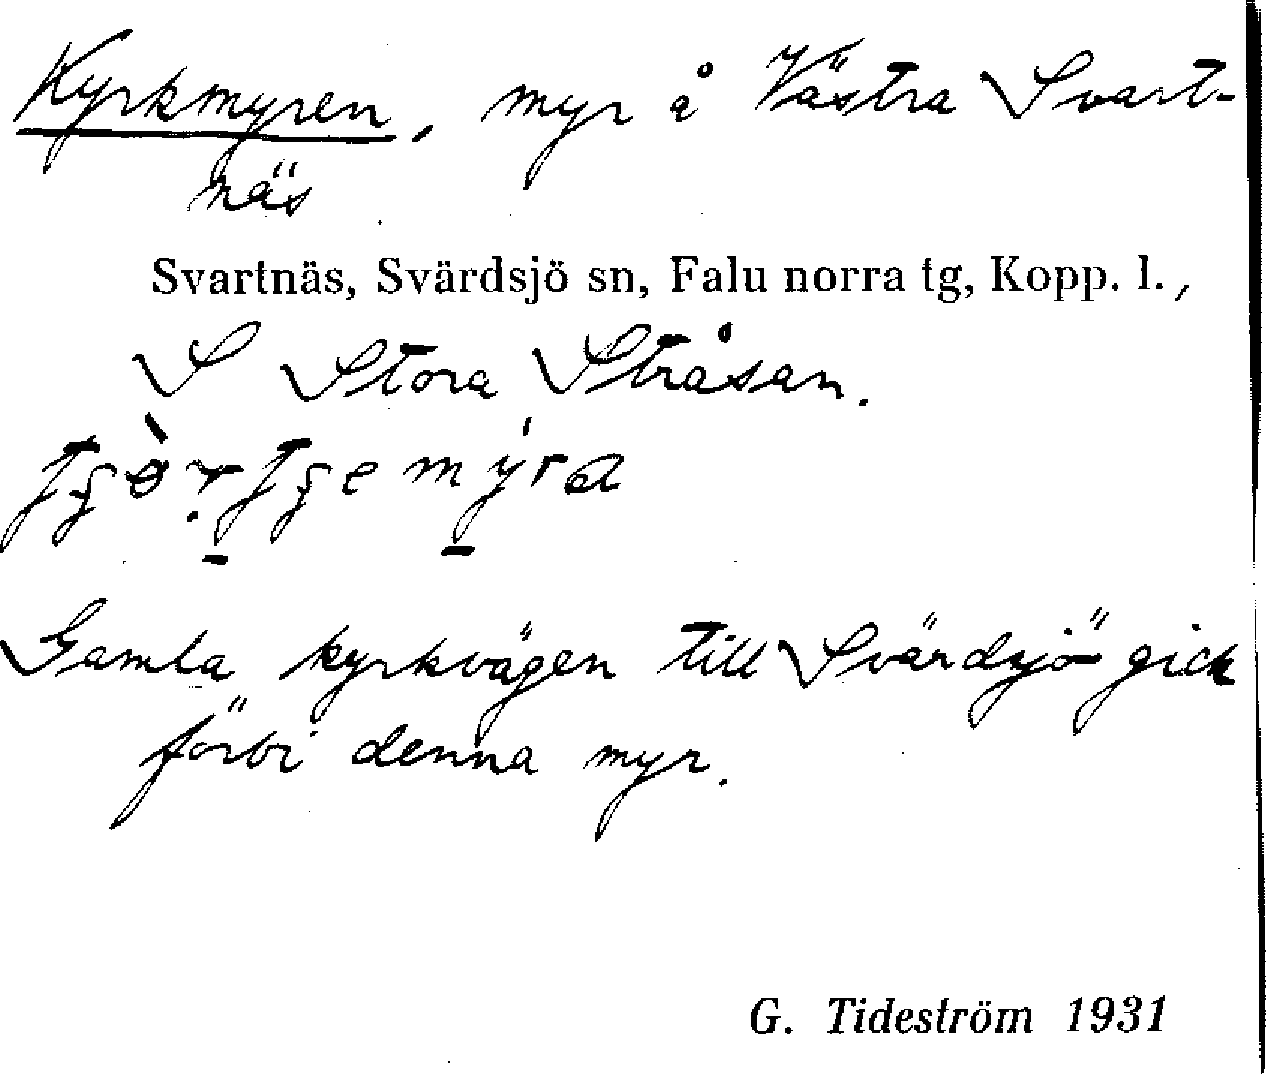 Kyrkmyren, myr å Västra Svart-
näs
Svartnäs, Svärdsjö sn, Falu norra tg, Kopp. l.,
S Stora Stråsan.
Gamla kyrkvägen till Svärdsjö gick
förbi denna myr.
G. Tideström 1931